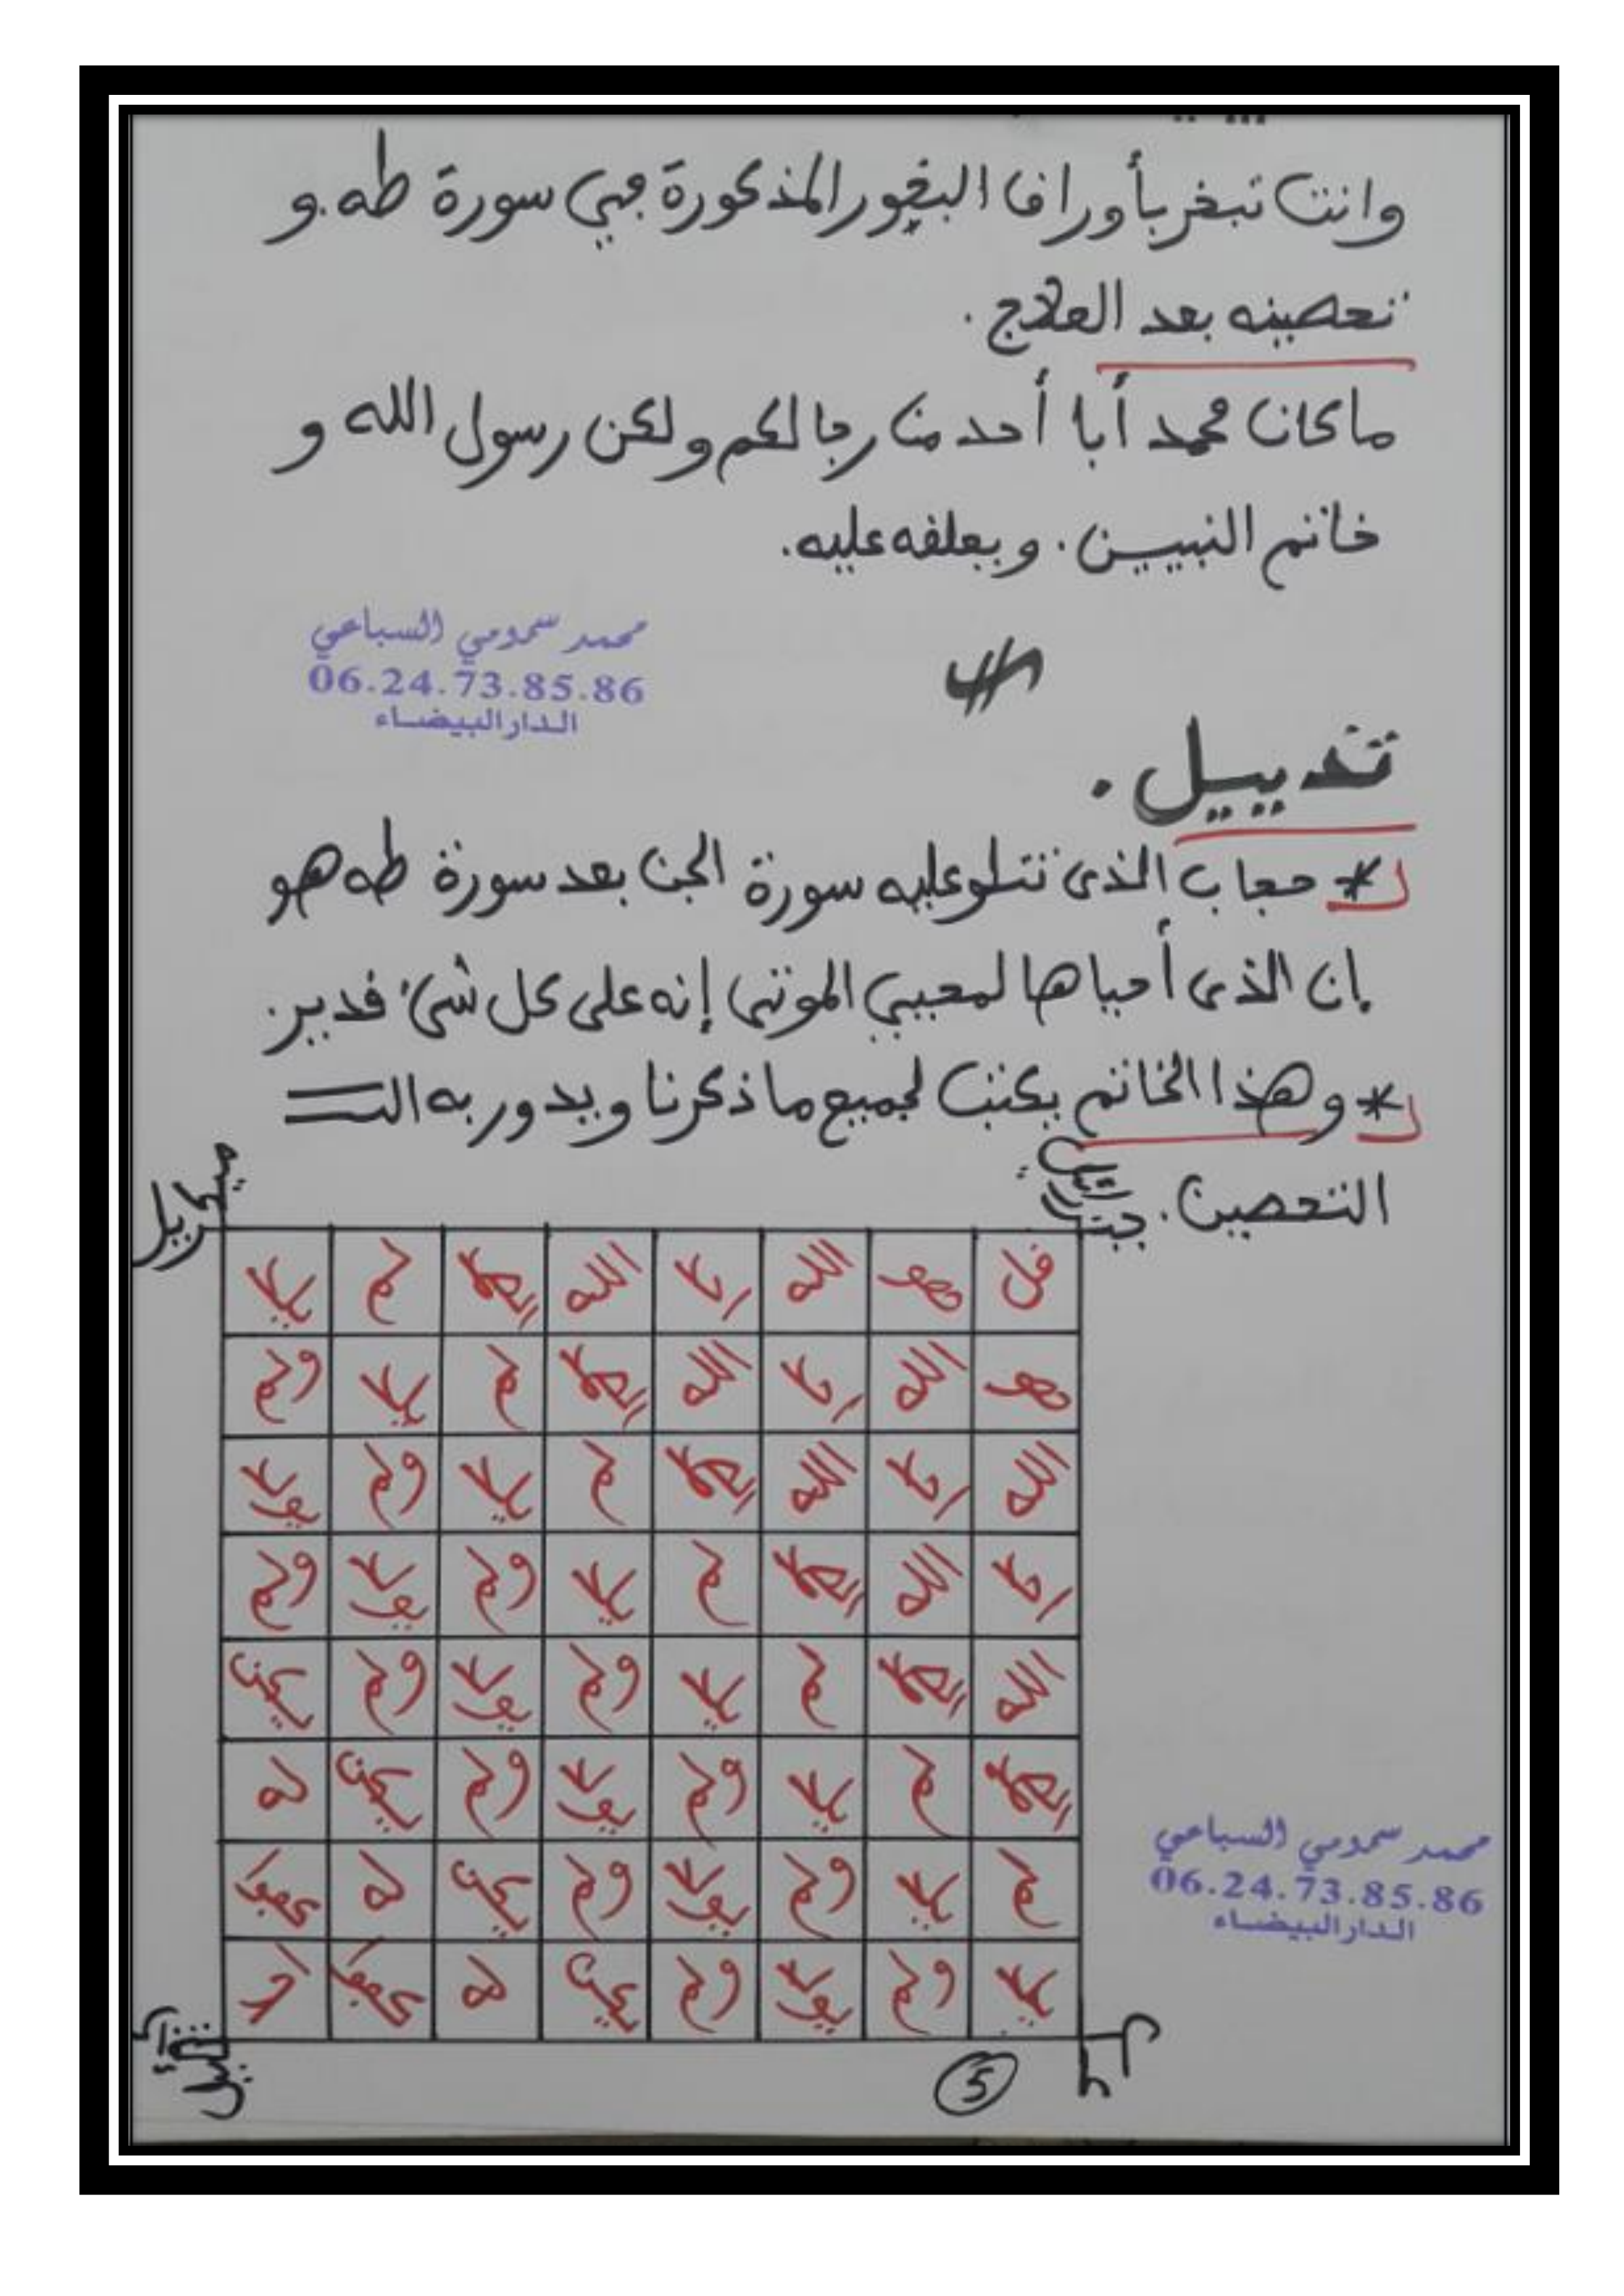 وانت تبخر بأوراق البخور المذكورة في سورة طه. و
تحصينه بعد العلاج.
ما كان محمد أبا أحد من رجالكم ولكن رسول الله و
خاتم النبيين. ويعلقه عليه.
محمد سمومي السباعي
06.24.73.85.86
الدار البيضاء
تذييل.
* حجاب الذي تتلو عليه سورة الجن بعد سورة طه هو
إن الذي أحياها لمحيي الموتى إنه على كل شيء قدير.
* وهذا الخاتم يكتب لجميع ما ذكرنا ويدور به
التحصين.
قل هو الله احد الله الصمد لم يلد
هو الله احد الله الصمد لم يلد ولم
الله احد الله الصمد لم يلد ولم يولد
احد الله الصمد لم يلد ولم يولد ولم
الله الصمد لم يلد ولم يولد ولم يكن
الصمد لم يلد ولم يولد ولم يكن له
لم يلد ولم يولد ولم يكن له كفوا
يلد ولم يولد ولم يكن له كفوا احد
محمد سمومي السباعي
06.24.73.85.86
الدار البيضاء
5